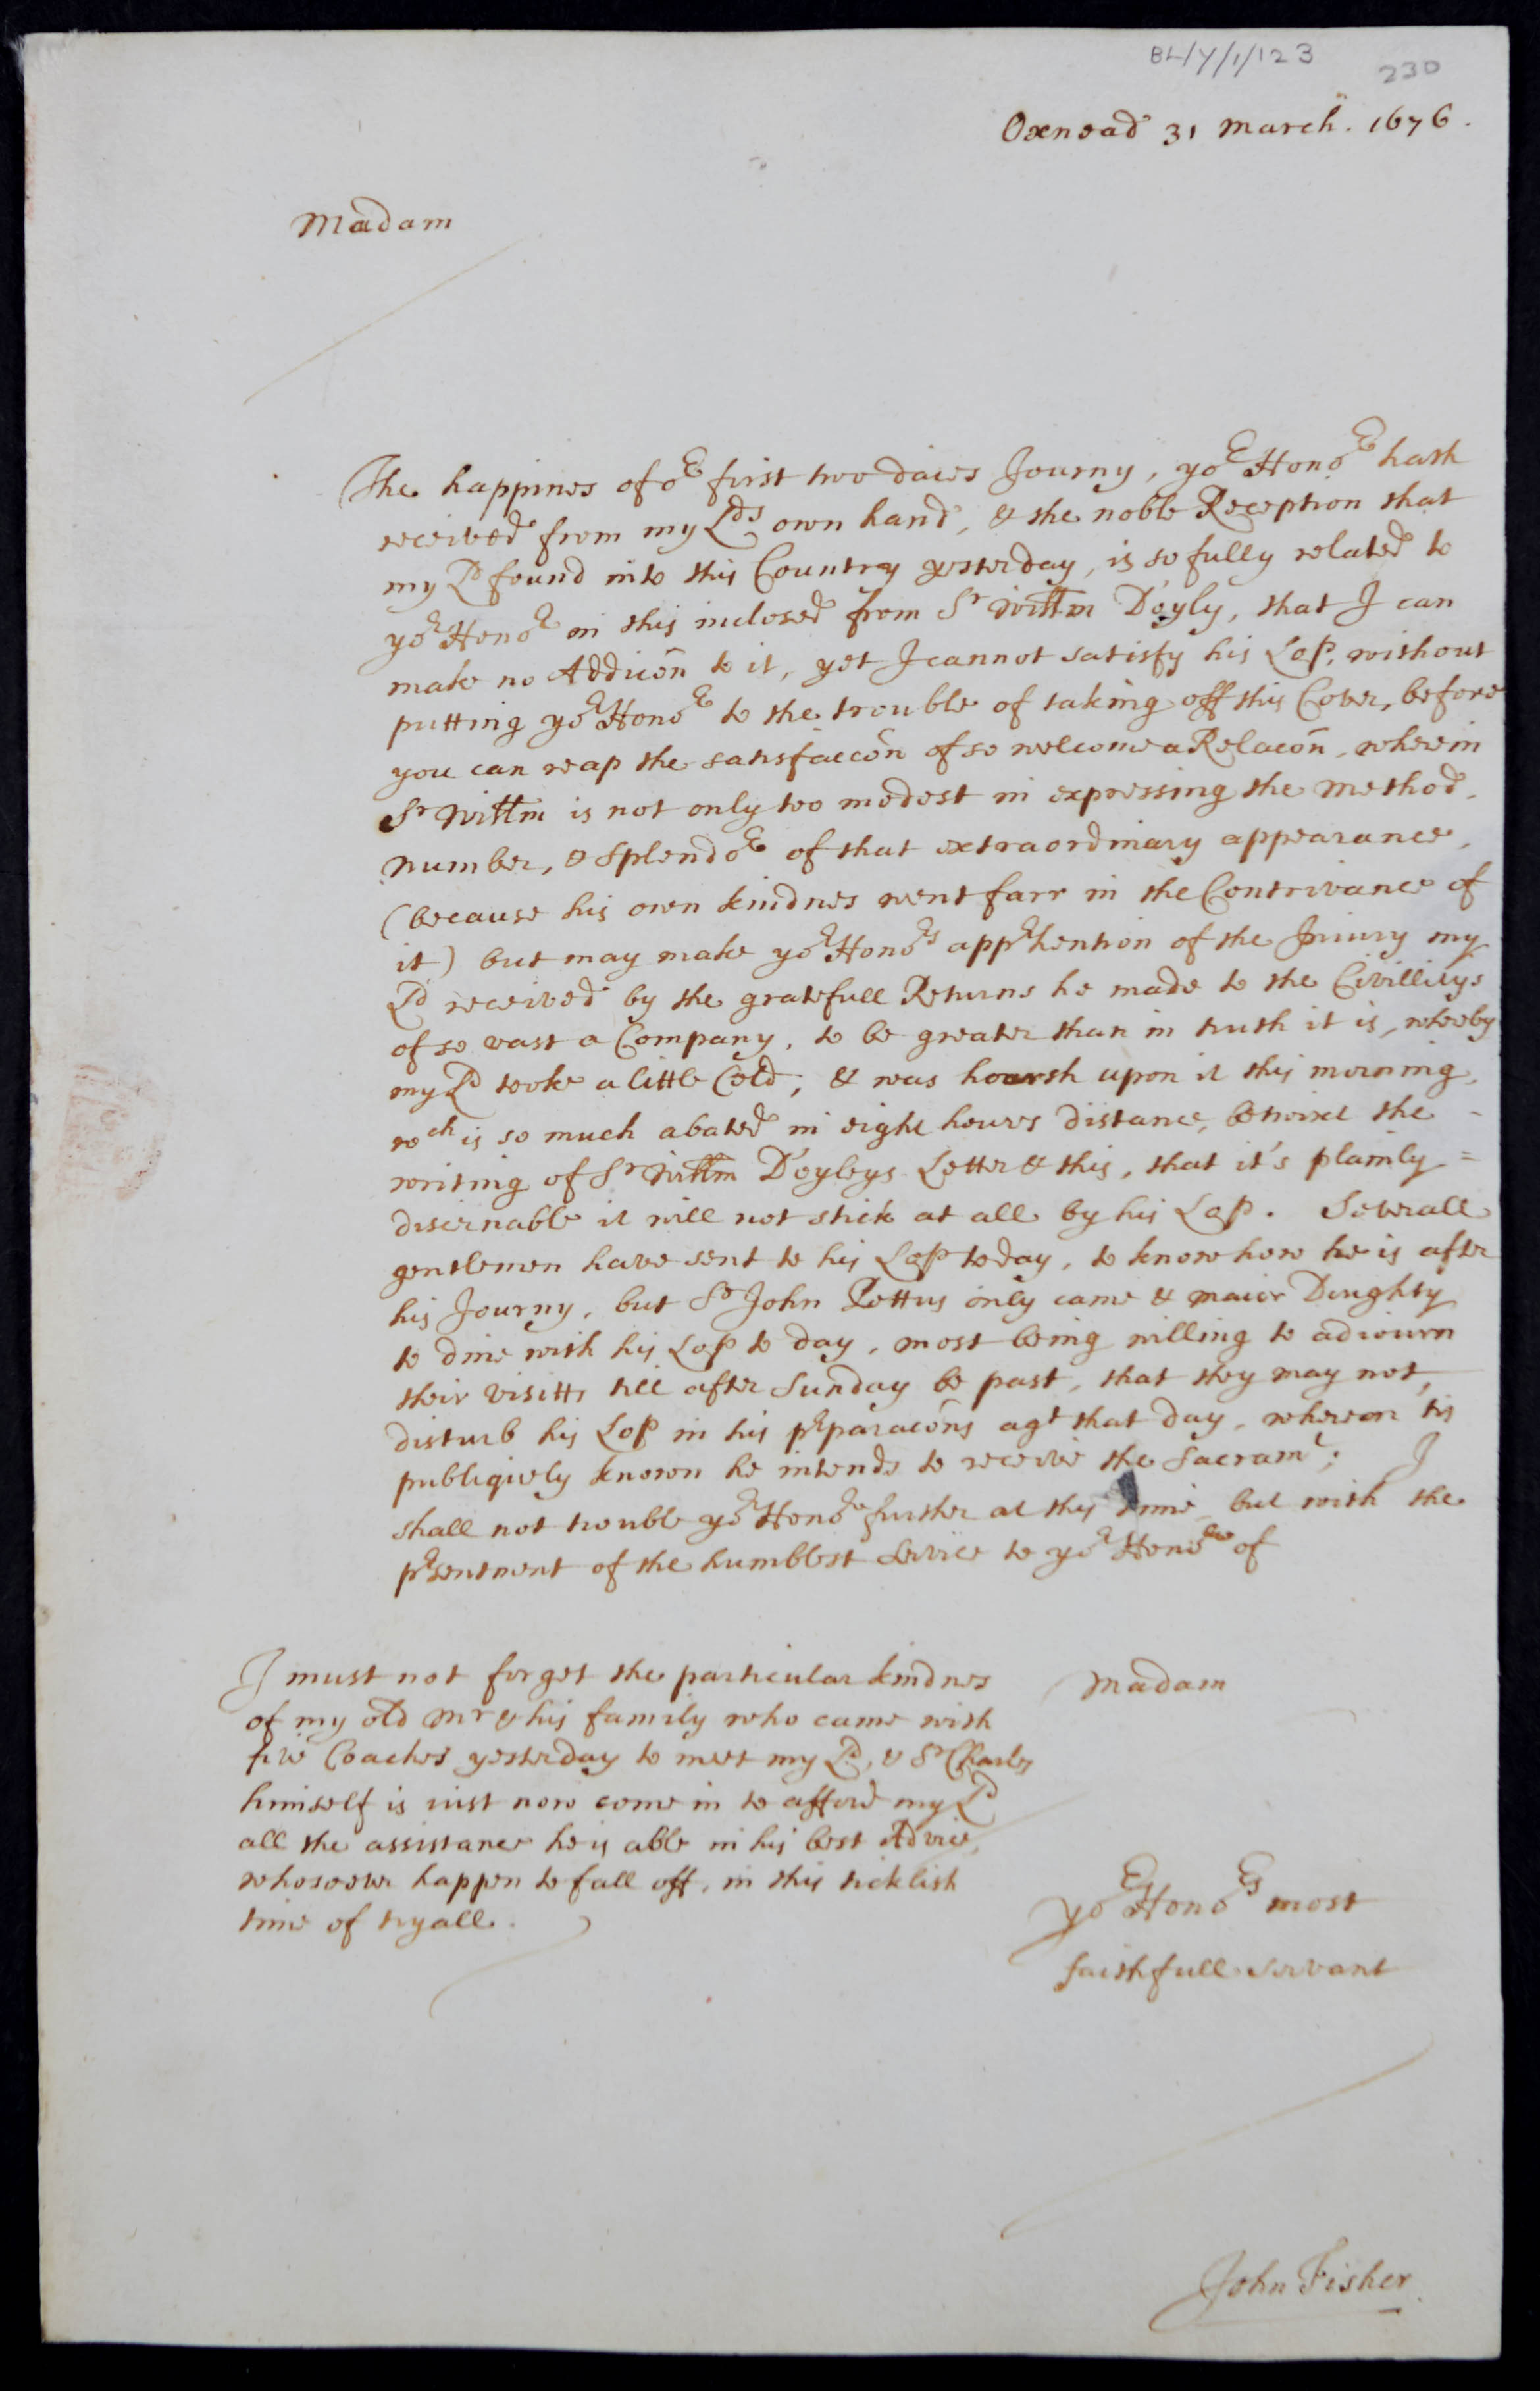 BL/Y/1/123
230
Oxnead 31 March. 1676.
Madam
The happines of or first two daies Journy, yor Honor hath
received from my Lds own hand, & the noble Reception that
my Ld found into this Country yesterday, is so fully related to
yor Honor in this inclosed from Sr Willm Doyly, that I can
make no Addicōn to it, yet I cannot satisfy his Lop, without
putting yor Honor to the trouble of taking off this Cover, before
you can reap the satisfaccōn of so welcome a Relacōn, wherein
Sr Willm is not only too modest in expressing the method,
number, & Splendor of that extraordinary appearance,
(because his own kindnes went farr in the Contrivance of
it) but may make yor Honors apprhention of the Iniury my
Ld received by the gratefull Returns he made to the Civillitys
of so vast a Company, to be greater than in truth it is, whereby
my Ld tooke a little Cold, & was hoarsh upon it this morning,
wch is so much abated in eight houres distance, betwixt the
writing of Sr Willm D'oyleys Letter & this, that it's plainly =
discernable it will not stick at all by his Lop. Severall
gentlemen have sent to his Lop today, to know how he is after
his Journy, but Sr John Pettus only came & maior Doughty
to dine with his Lop to day, most being willing to adiourn
their visitts till after Sunday be past, that they may not
disturb his Lop in his prparacōns agt that day, whereon tis
publiquely known he intends to receive the Sacramt; I
shall not trouble yor Honor further at this time, but with the
prsentment of the humblest service to yor Honor of
I must not forget the particular kindnes
of my old Mr & his family who came with
five Coaches yesterday to meet my Ld, & Sr Charles
himself is iust now come in to afford my Ld
all the assistance he is able in his best Advice,
whosoever happen to fall off, in this ticklish
time of tryall.
Madam
yor Honors most
faithfull servant
John Fisher